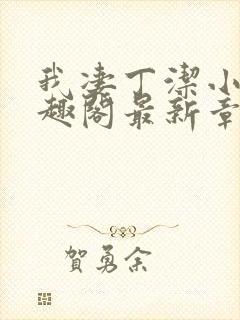 我凄丁潔小
趣閣最新章
賀勇余